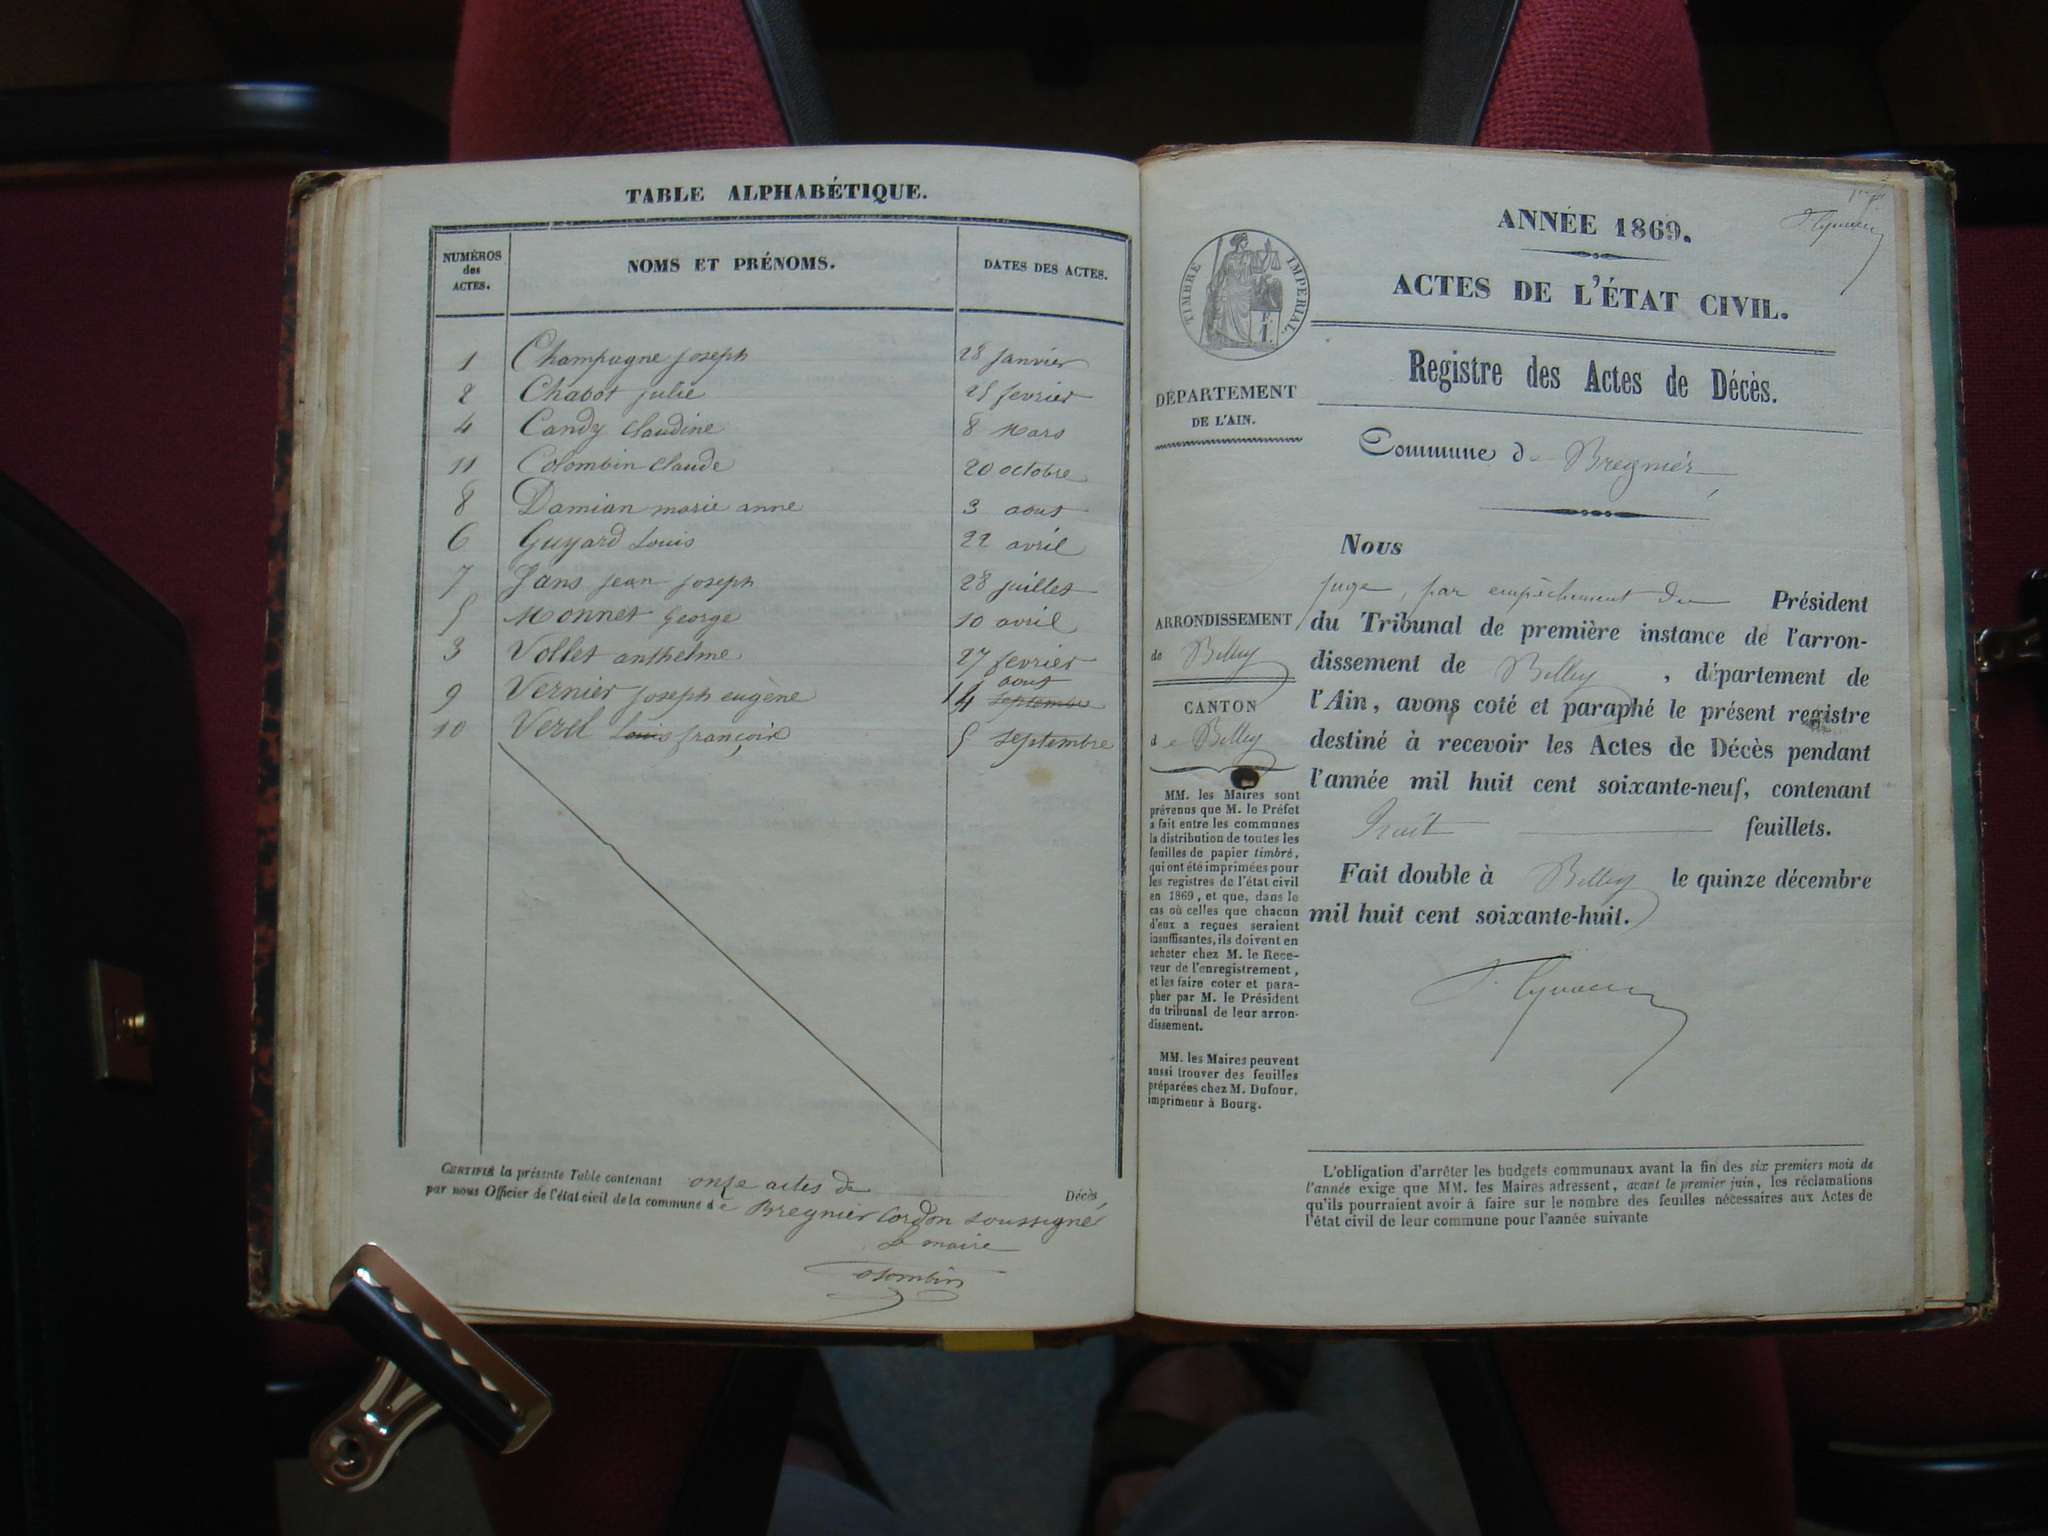 TABLE ALPHABÉTIQUE.
NUMÉROS des ACTES. NOMS ET PRÉNOMS. DATES DES ACTES.
1 Champagne joseph 28 janvier
2 Chabot julie 25 fevrier
4 Candy Claudine 8 Mars
11 Colombin Claude 20 octobre
8 Damian marie anne 3 aout
6 Guyard Louis 22 avril
7 Jans jean joseph 28 juillet
5 Monnet George 10 avril
3 Vollet anthelme 27 fevrier
9 Vernier joseph eugène 14 septembre aout
10 Veret Louis françois 5 septembre
CERTIFIÉ la présente Table contenant onze actes de Décès
par nous Officier de l'état civil de la commune de Bregnier Cordon soussigné
Le maire
Colombin
ANNÉE 1869.
ACTES DE L'ÉTAT CIVIL.
TIMBRE IMPÉRIAL.
Registre des Actes de Décès.
DÉPARTEMENT
DE L'AIN.
Commune de Bregnier
Nous
juge, par empêchement du Président
du Tribunal de première instance de l'arron-
dissement de Belley, département de
l'Ain, avons coté et paraphé le présent registre
destiné à recevoir les Actes de Décès pendant
l'année mil huit cent soixante-neuf, contenant
huit feuillets.
Fait double à Belley le quinze décembre
mil huit cent soixante-huit.
ARRONDISSEMENT
de Belley
CANTON
de Belley
MM. les Maires sont
prévenus que M. le Préfet
a fait entre les communes
la distribution de toutes les
feuilles de papier timbré,
qui ont été imprimées pour
les registres de l'état civil
en 1869, et que, dans le
cas où celles que chacun
d'eux a reçues seraient
insuffisantes, ils doivent en
acheter chez M. le Rece-
veur de l'enregistrement,
et les faire coter et para-
pher par M. le Président
du tribunal de leur arron-
dissement.
MM. les Maires peuvent
aussi trouver des feuilles
préparées chez M. Dufour,
imprimeur à Bourg.
L'obligation d'arrêter les budgets communaux avant la fin des six premiers mois de
l'année exige que MM. les Maires adressent, avant le premier juin, les réclamations
qu'ils pourraient avoir à faire sur le nombre des feuilles nécessaires aux Actes de
l'état civil de leur commune pour l'année suivante